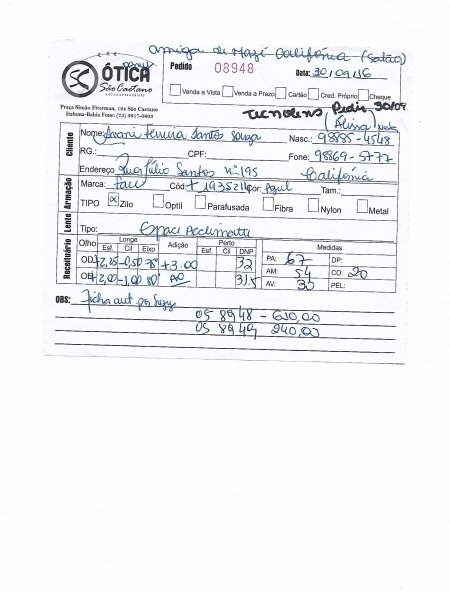 amiga de Mazé Califórnia (Salão)
ÓTICA
São Caetano
Pedido 08948 Data: 30/09/16
Venda a Vista Venda a Prazo Cartão Cred. Próprio Cheque
Praça Simão Fiterman, 194 São Caetano
Itabuna-Bahia Fone: (73) 3617-0603
Pedir 30/09
Cliente
Nome: Ivani Ferreira Santos Souza Nasc.: 98885-4548
RG.: CPF: Fone: 98869-5777
Endereço Rua Júlio Santos nº 195 Califórnia
Armação
Marca: Cód Cor: Azul Tam.:
TIPO x Zilo Optil Parafusada Fibra Nylon Metal
Lente
Tipo: Espaci Acclimatti
Receituário
Olho Longe Adição Perto Medidas
Esf. Cil Eixo Esf. Cil DNP
OD +2,25 -0,50 +3.00 32 PA: 67 DP:
OE +2,00 -1,00 80° 31,5 AM: 54 CO: 20
AV: 35 PEL:
OBS: Ficha aut por Suzy
OS 8948 - 610,00
OS 8949 240,00